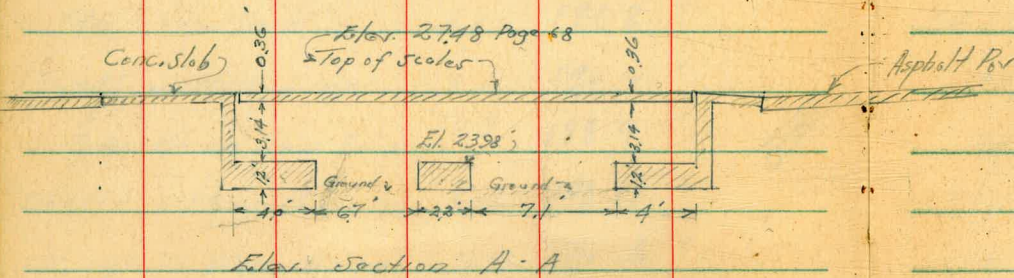 Elev. 27.48 Page 68
Top of scales
Conc. slab
Asphalt Pav
0.36
0.36
3.14
3.14
El. 23.98'
12"
12"
Ground
Ground
4.0' 6.7' 2.2' 7.1' 4'
Elev. Section A-A